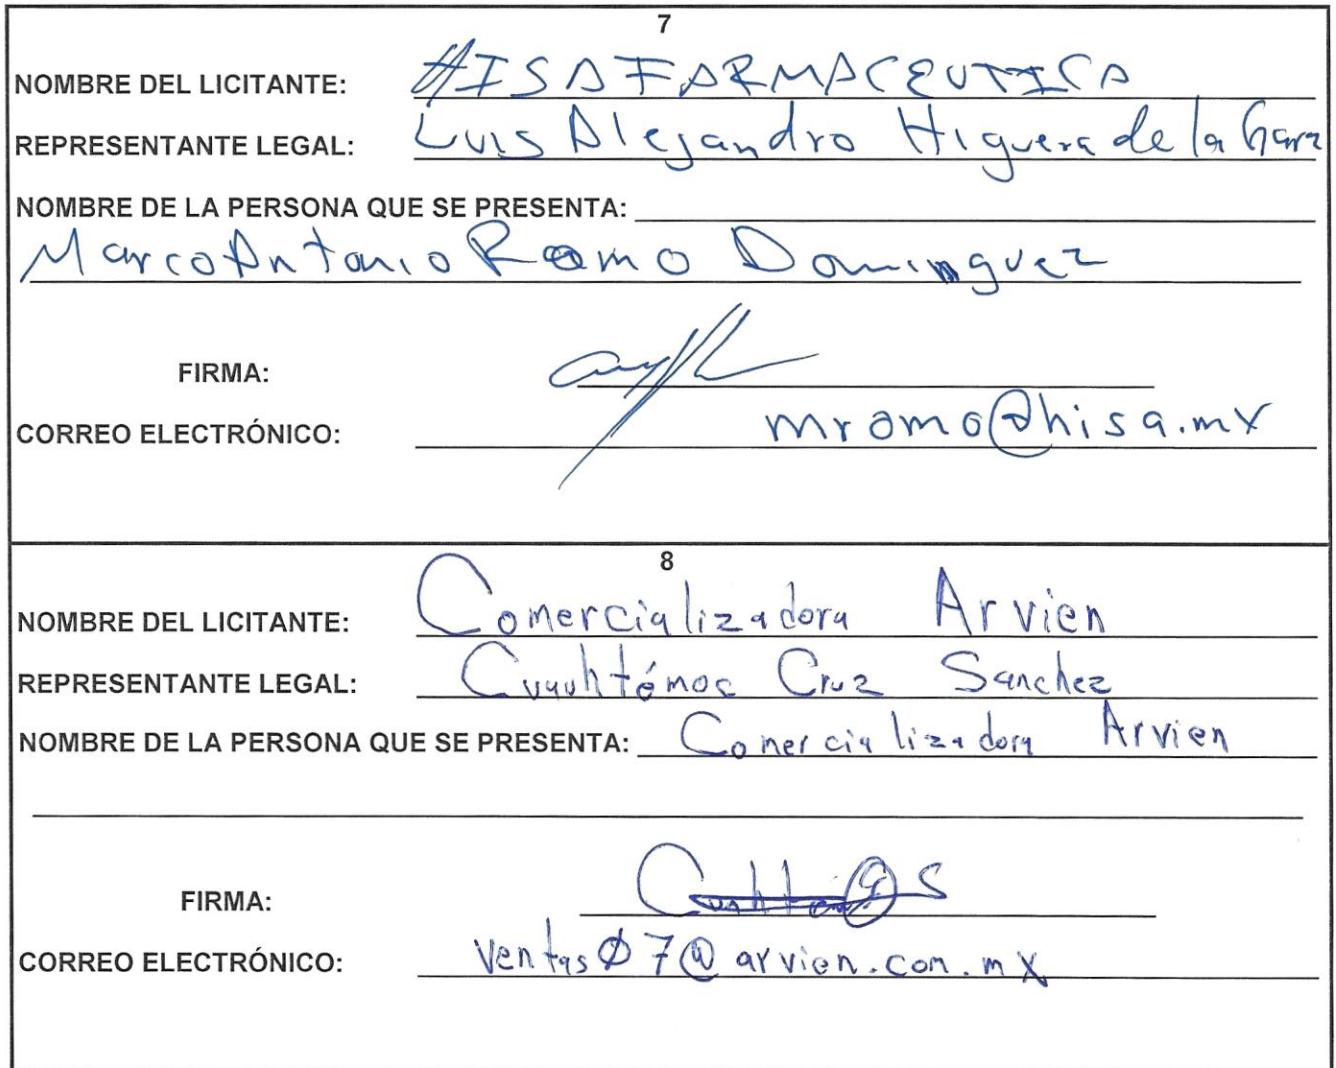 7
NOMBRE DEL LICITANTE: HISA FARMACEUTICA
REPRESENTANTE LEGAL: Luis Alejandro Higuera de la Garz
NOMBRE DE LA PERSONA QUE SE PRESENTA:
Marco Antonio Romo Dominguez
FIRMA:
CORREO ELECTRÓNICO: mromo@hisa.mx
8
NOMBRE DEL LICITANTE: Comercializadora Arvien
REPRESENTANTE LEGAL: Cuauhtémoc Cruz Sanchez
NOMBRE DE LA PERSONA QUE SE PRESENTA: Comercializadora Arvien
FIRMA:
CORREO ELECTRÓNICO: ventasØ7@arvien.com.mx